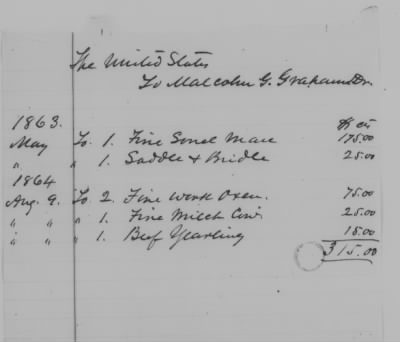 The United States
To Malcolm G. Graham Dr.
1863. $ cts
May To 1. Fine Sorrel Mare 175.00
" " 1. Saddle & Bridle 25.00
1864
Aug. 9. To 2. Fine Work Oxen. 75.00
" " " 1. Fine Milch Cow. 25.00
" " " 1. Beef Yearling 15.00
315.00